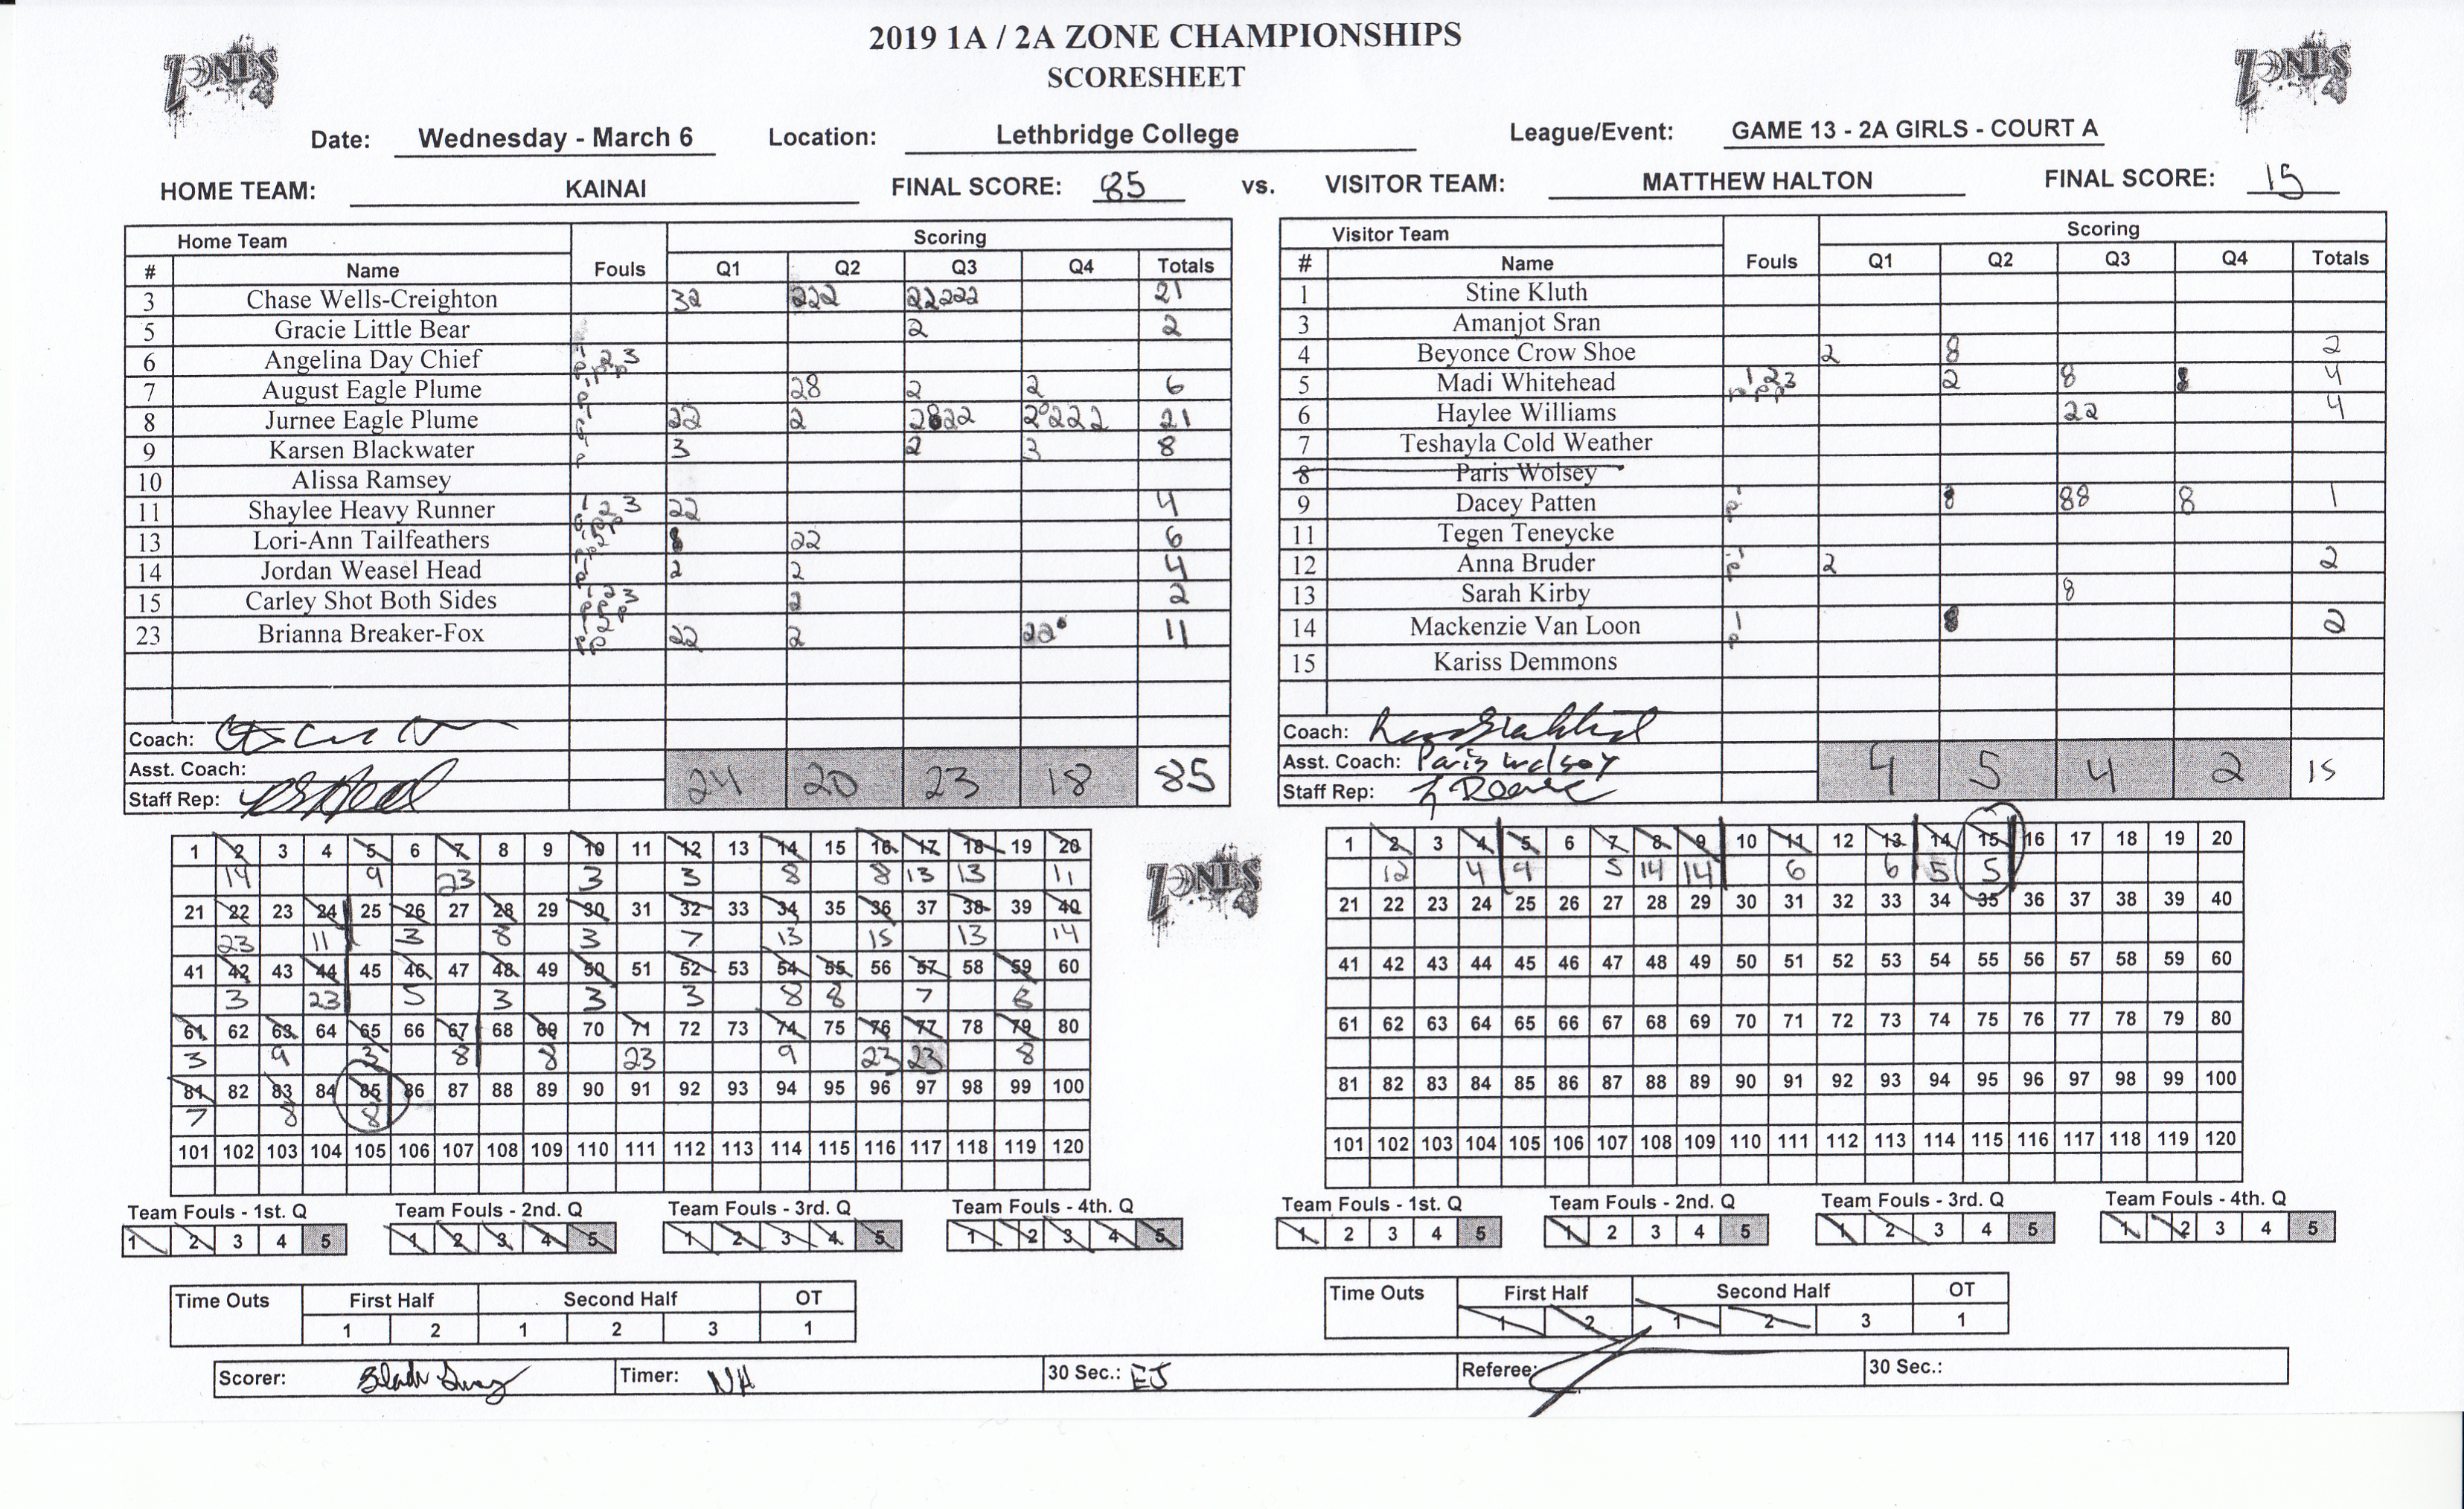 2019 1A / 2A ZONE CHAMPIONSHIPS
SCORESHEET
ZONES
ZONES
Date: Wednesday - March 6 Location: Lethbridge College League/Event: GAME 13 - 2A GIRLS - COURT A
HOME TEAM: KAINAI FINAL SCORE: 85 vs. VISITOR TEAM: MATTHEW HALTON FINAL SCORE: 15
Home Team Fouls Scoring
# Name Q1 Q2 Q3 Q4 Totals
3 Chase Wells-Creighton 32 222 22222 21
5 Gracie Little Bear 2 2
6 Angelina Day Chief 1 2 3 P P P
7 August Eagle Plume 1 P 28 2 2 6
8 Jurnee Eagle Plume 1 P 22 2 2822 2222 21
9 Karsen Blackwater 1 P 3 2 3 8
10 Alissa Ramsey
11 Shaylee Heavy Runner 1 2 3 P P P 22 4
13 Lori-Ann Tailfeathers 1 2 P P 8 22 6
14 Jordan Weasel Head 1 P 2 2 4
15 Carley Shot Both Sides 1 2 3 P P P 2 2
23 Brianna Breaker-Fox 1 2 P P 22 2 22 11
Coach:
Asst. Coach: 24 20 23 18 85
Staff Rep:
Visitor Team Fouls Scoring
# Name Q1 Q2 Q3 Q4 Totals
1 Stine Kluth
3 Amanjot Sran
4 Beyonce Crow Shoe 2 8 2
5 Madi Whitehead 1 2 3 P P P 2 8 8 4
6 Haylee Williams 22 4
7 Teshayla Cold Weather
8 Paris Wolsey
9 Dacey Patten 1 P 8 88 8 1
11 Tegen Teneycke
12 Anna Bruder 1 P 2 2
13 Sarah Kirby 8
14 Mackenzie Van Loon 1 P 8 2
15 Kariss Demmons
Coach:
Asst. Coach: Paris Wolsey 4 5 4 2 15
Staff Rep:
1 2 3 4 5 6 7 8 9 10 11 12 13 14 15 16 17 18 19 20
14 9 23 3 3 8 8 13 13 11
21 22 23 24 25 26 27 28 29 30 31 32 33 34 35 36 37 38 39 40
23 11 3 8 3 7 13 15 13 14
41 42 43 44 45 46 47 48 49 50 51 52 53 54 55 56 57 58 59 60
3 23 5 3 3 3 8 8 7 8
61 62 63 64 65 66 67 68 69 70 71 72 73 74 75 76 77 78 79 80
3 9 3 8 8 23 9 23 23 8
81 82 83 84 85 86 87 88 89 90 91 92 93 94 95 96 97 98 99 100
7 8 8
101 102 103 104 105 106 107 108 109 110 111 112 113 114 115 116 117 118 119 120
ZONES
1 2 3 4 5 6 7 8 9 10 11 12 13 14 15 16 17 18 19 20
12 4 9 5 14 14 6 6 5 5
21 22 23 24 25 26 27 28 29 30 31 32 33 34 35 36 37 38 39 40
41 42 43 44 45 46 47 48 49 50 51 52 53 54 55 56 57 58 59 60
61 62 63 64 65 66 67 68 69 70 71 72 73 74 75 76 77 78 79 80
81 82 83 84 85 86 87 88 89 90 91 92 93 94 95 96 97 98 99 100
101 102 103 104 105 106 107 108 109 110 111 112 113 114 115 116 117 118 119 120
Team Fouls - 1st. Q Team Fouls - 2nd. Q Team Fouls - 3rd. Q Team Fouls - 4th. Q
1 2 3 4 5 1 2 3 4 5 1 2 3 4 5 1 2 3 4 5
Team Fouls - 1st. Q Team Fouls - 2nd. Q Team Fouls - 3rd. Q Team Fouls - 4th. Q
1 2 3 4 5 1 2 3 4 5 1 2 3 4 5 1 2 3 4 5
Time Outs First Half Second Half OT
1 2 1 2 3 1
Time Outs First Half Second Half OT
1 2 1 2 3 1
Scorer: Timer: NH 30 Sec.: EJ Referee: 30 Sec.: